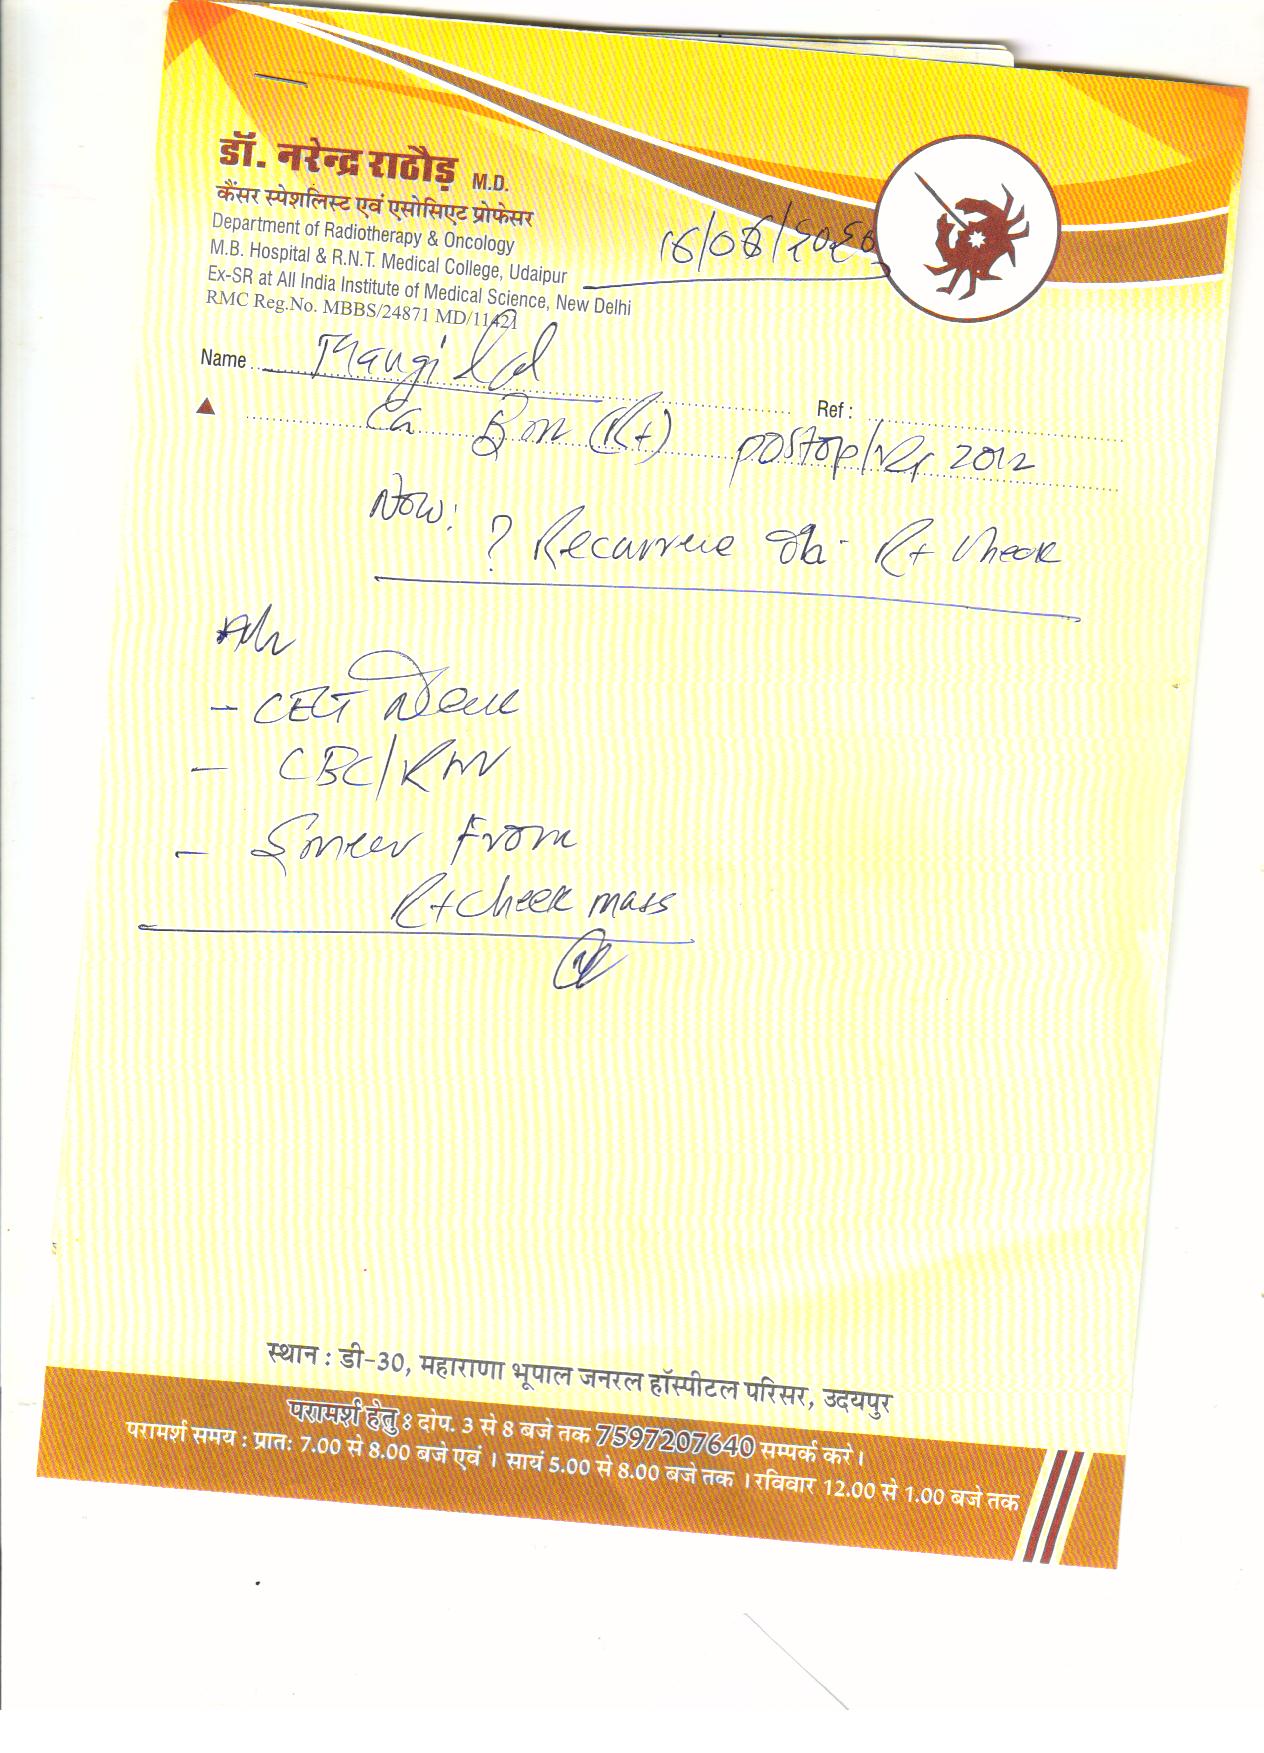 डॉ. नरेन्द्र राठौड़ M.D.
कैंसर स्पेशलिस्ट एवं एसोसिएट प्रोफेसर
Department of Radiotherapy & Oncology
M.B. Hospital & R.N.T. Medical College, Udaipur
Ex-SR at All India Institute of Medical Science, New Delhi
RMC Reg.No. MBBS/24871 MD/11421
Name Mangi lal
Ref :
Ca BM (Rt) postop/ 2012
Now: ? Recurrence Rt cheek
Adv
- CECT
- CBC/
- Smear From
Rt cheek mass
स्थान : डी-30, महाराणा भूपाल जनरल हॉस्पीटल परिसर, उदयपुर
परामर्श हेतु : दोप. 3 से 8 बजे तक 7597207640 सम्पर्क करे ।
परामर्श समय : प्रातः 7.00 से 8.00 बजे एवं । सायं 5.00 से 8.00 बजे तक । रविवार 12.00 से 1.00 बजे तक